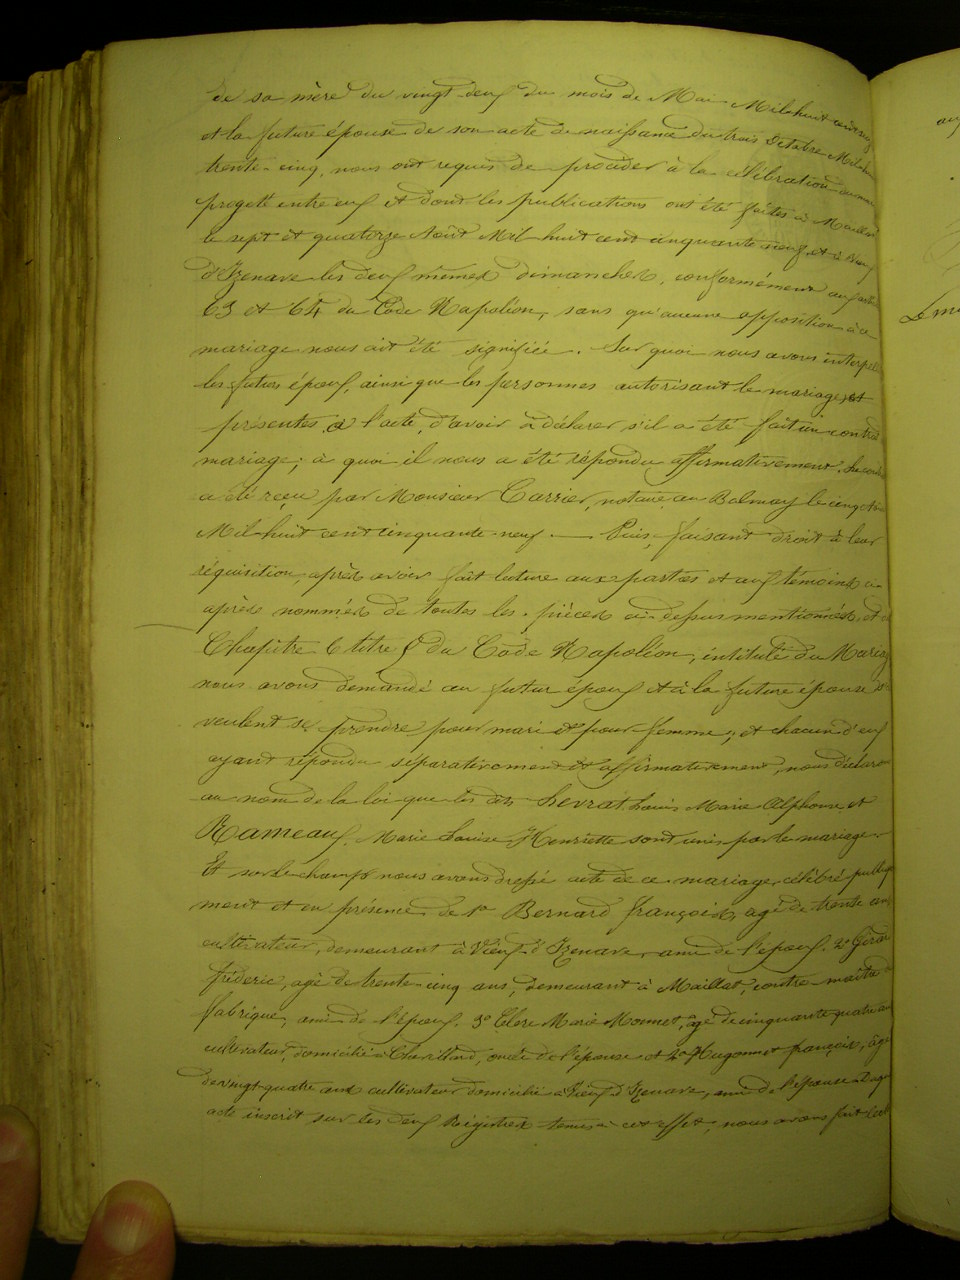 de sa mère du vingt-deux du mois de Mai Mil-huit cent
et la future épouse de son acte de naissance du trois Octobre Mil-huit
trente-cinq, nous ont requis de procéder à la célébration du mar
projeté entre eux et dont les publications ont été faites à Maillat
le sept et quatorze Août Mil huit cent cinquante neuf, et à Vieux
d'Izenave les deux mêmes dimanches, conformément aux art
63 et 64 du Code Napoléon, sans qu'aucune opposition à ce
mariage nous ait été signifiée. Sur quoi nous avons interpellé
les futurs époux, ainsi que les personnes autorisant le mariage et
présentes à l'acte, d'avoir à déclarer s'il a été fait un contrat
mariage, à quoi il nous a été répondu affirmativement. Le contr
a été reçu par Monsieur Carrier, notaire au Balmay le cinq Août
Mil-huit cent cinquante-neuf. — Puis, faisant droit à leur
réquisition, après avoir fait lecture aux parties et aux témoins ci-
après nommés de toutes les pièces ci-dessus mentionnées, et d
Chapitre 6 titre 5 du Code Napoléon, intitulé du Mariag
nous avons demandé au futur époux et à la future épouse s'ils
veulent se prendre pour mari et pour femme; et chacun d'eux
ayant répondu séparativement et affirmativement, nous déclarons
au nom de la loi que les dits Levrat Louis Marie Alphonse et
Rameaux Marie Louise Henriette sont unis par le mariage.
Et sur le champ nous avons dressé acte de ce mariage, célébré publiq
ment et en présence de 1º Bernard françois, agé de trente ans
cultivateur, demeurant à Vieux d'Izenave, ami de l'époux. 2º Girar
fréderic, agé de trente-cinq ans, demeurant à Maillat, contre-maître d
fabrique, ami de l'époux. 3º Marie Monnet, agé de cinquante quatre ans
cultivateur, domicilié à Chevillard, oncle de l'épouse et 4º Hugonnet françois, âgé
de vingt-quatre ans cultivateur domicilié à Vieux d'Izenave, ami de l'épouse
acte inscrit sur les deux Registres tenus à cet effet, nous avons fait lect